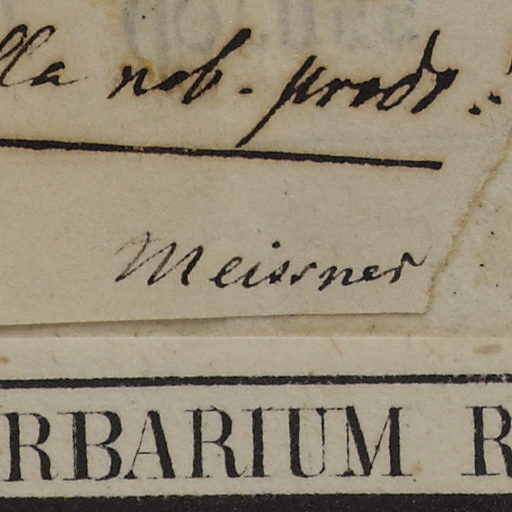 lla nob. prodr.
Meissner
RBARIUM R